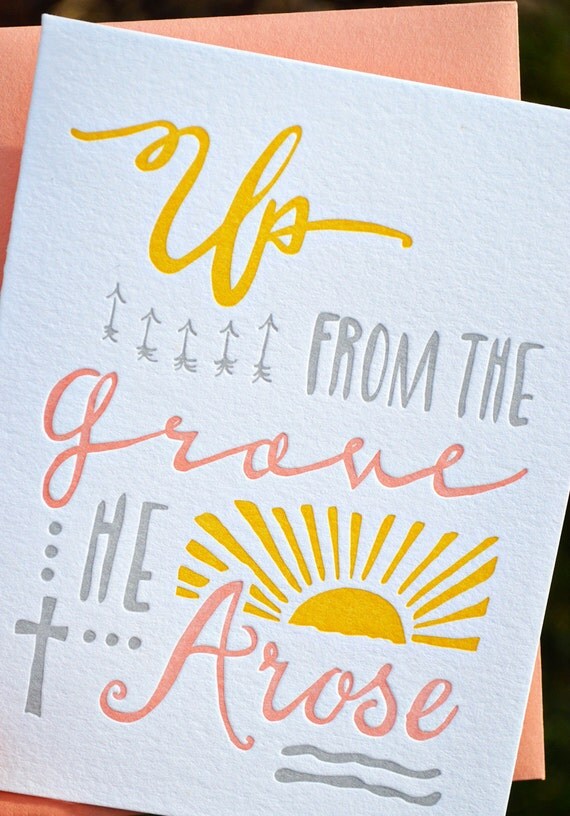 Up
FROM THE
grave
HE
Arose